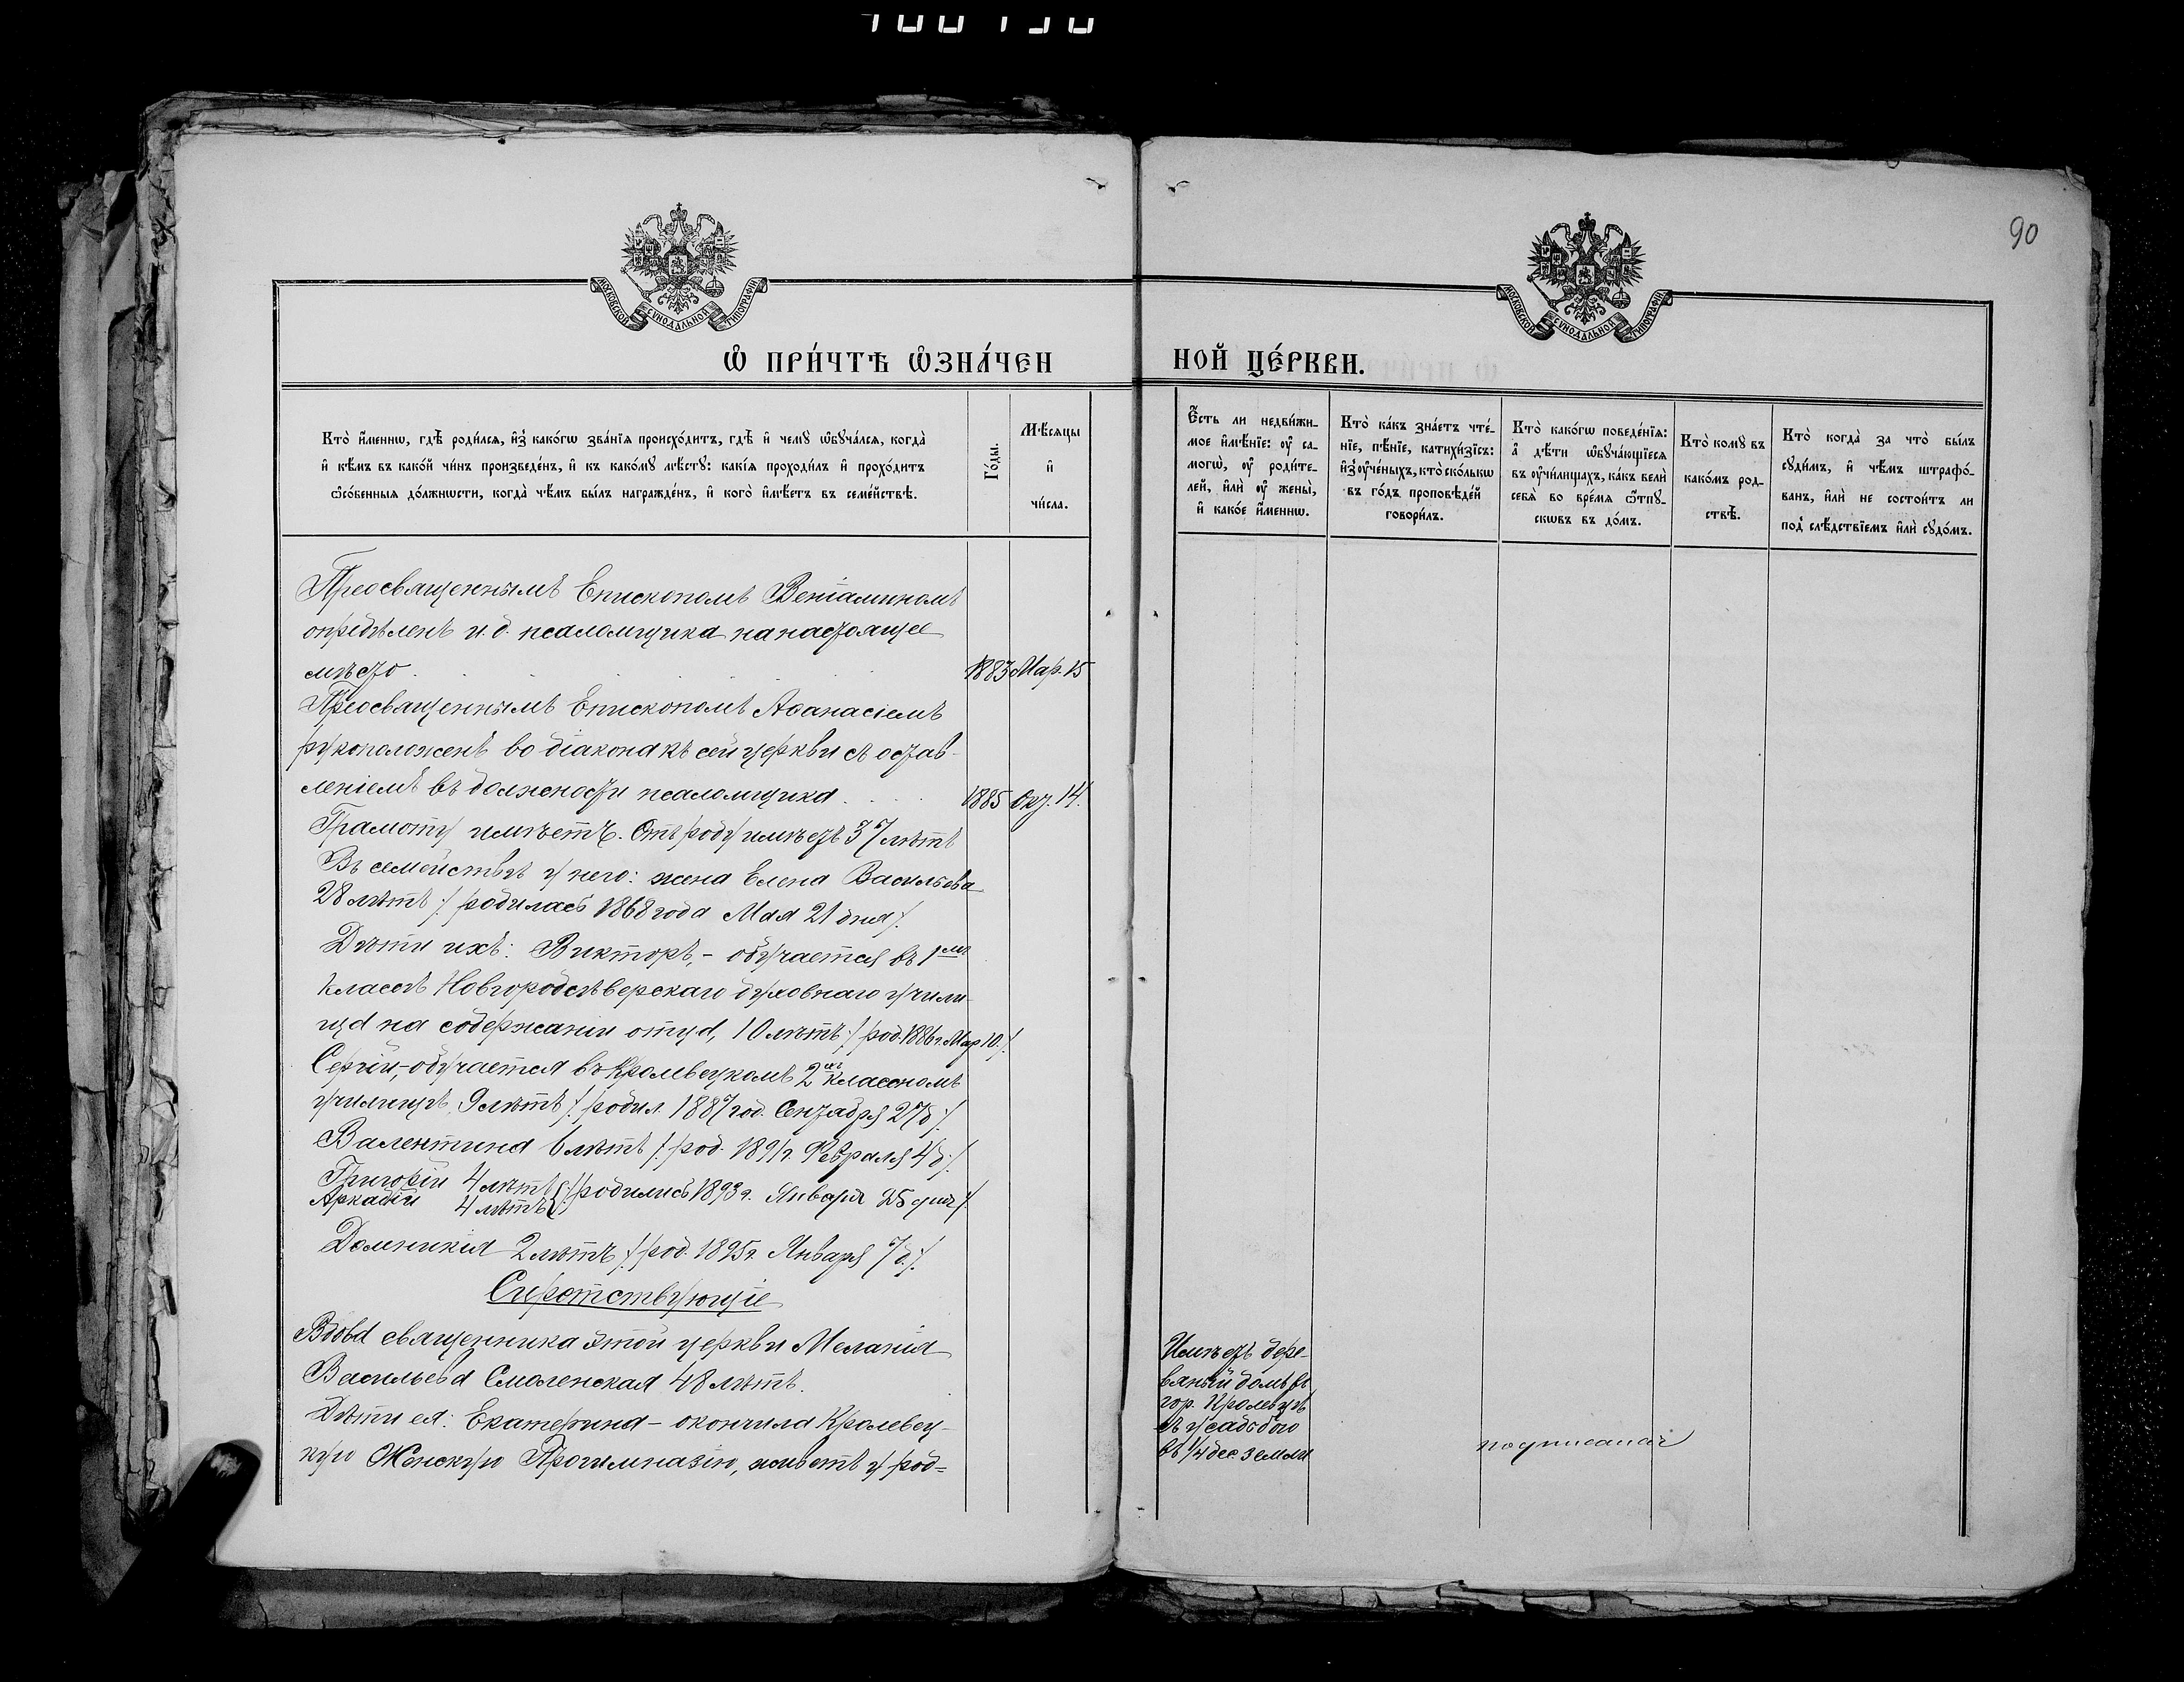 90
МОСКОВСКОЙ СѴНОДАЛЬНОЙ ТИПОГРАФІИ
МОСКОВСКОЙ СѴНОДАЛЬНОЙ ТИПОГРАФІИ
Ѡ҆ ПРИ́ЧТѢ Ѡ҆ЗНА́ЧЕН НОЙ ЦЕ́РКВИ.
Кто̀ и҆́менни, гдѣ̀ роди́лся, и҆з̾ како́гѡ зва́нїя происхо́дитъ, гдѣ̀ и҆ чемꙋ̀ ѡ҆бꙋча́лся, когда̀
и҆ кѣ́мъ въ како́й чи́нъ произведе́нъ, и҆ къ како́мꙋ мѣ́стꙋ: какі́я проходи́лъ и҆ прохо́дитъ
ѻ҆со́бенныя до́лжнѡсти, когда̀ чѣ́мъ бы́лъ награжде́нъ, и҆ кого̀ и҆мѣ́етъ въ семе́йствѣ.
Го́ды.
Мѣ́сяцы
и҆
чи́сла.
Є҆́сть ли недви́жи-
мое и҆мѣ́нїе: ᲂу҆ са-
могѡ̀, ᲂу҆ роди́те-
лей, и҆лѝ ᲂу҆ жены̀,
и҆ како́е и҆́меннѡ.
Кто̀ ка́къ зна́етъ чте́-
нїе, пѣ́нїе, катихи́зїсъ:
и҆з̾ ᲂу҆че́ныхъ, кто̀ ско́лькѡ
въ го́дъ проповѣ́дей
говори́лъ.
Кто̀ како́гѡ поведе́нїя:
а҆ дѣ́ти ѡ҆бꙋча́ющїеся
въ ᲂу҆чи́лищахъ, ка́къ велѝ
себя̀ во вре́мя ѿпꙋ-
скѡвъ въ до́мъ.
Кто̀ комꙋ̀ въ
како́мъ род-
ствѣ̀.
Кто̀ когда̀ за что̀ бы́лъ
сꙋди́мъ, и҆ чѣ́мъ штрафо́-
ванъ, и҆лѝ не состои́тъ ли
под̾ слѣ́дствїемъ и҆лѝ сꙋдо́мъ.
Преосвященнымъ Епископомъ Веніаминомъ
опредѣленъ и. д. псаломщика на настоящее
мѣсто. 1883 Мар. 15
Преосвященнымъ Епископомъ Аѳанасіемъ
рукоположенъ во діакона къ сей церкви съ остав-
леніемъ въ должности псаломщика . . . 1885 Окт. 14.
Грамоту имѣетъ. Отъ роду имѣетъ 37 лѣтъ
Въ семействѣ у него: жена Елена Васильева
28 лѣтъ /: родилась 1868 года Мая 21 дня /.
Дѣти ихъ: Викторъ, - обучается въ 1мъ
классѣ Новгородсѣверскаго духовнаго учили-
ща на содержаніи отца, 10 лѣтъ /: род. 1886 г. Мар 10. /.
Сергій, - обучается въ Кролевецкомъ 2хъ классномъ
училищѣ, 9 лѣтъ /: родил. 1887 год. Сентября 27 д. /.
Валентина 6 лѣтъ /: род. 1891 г. Февраля 4 д. /.
Григорій 4 лѣтъ
Аркадій 4 лѣтъ /: родились 1893 г. Января 25 дня /.
Домникія 2 лѣтъ /: род. 1895 г. Января 7 д. /.
Сиротствующіе
Вдова священника этой церкви Меланія
Васильева Смоленская 48 лѣтъ.
Дѣти ея: Екатерина - окончила Кролевец-
кую Женскую Прогимназію, живетъ у род=
Имѣетъ дере-
вяный домъ въ
гор. Кролевцѣ
съ усадьбою
въ 1/4 дес. земли